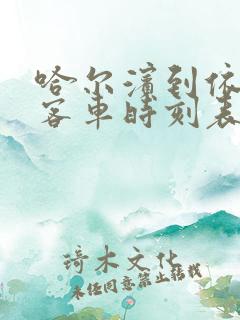 哈尔滨到依
客车时刻表
琦木文化
未经同意禁止转载